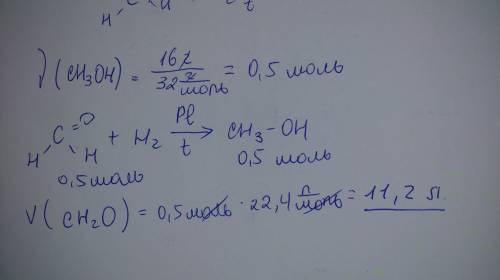 H H t
ν(CH₃OH) = 16г / 32 г/моль = 0,5 моль
H C =O H + H₂ Pt → t CH₃–OH
0,5 моль 0,5 моль
V(CH₂O) = 0,5 моль · 22,4 л/моль = 11,2 л.